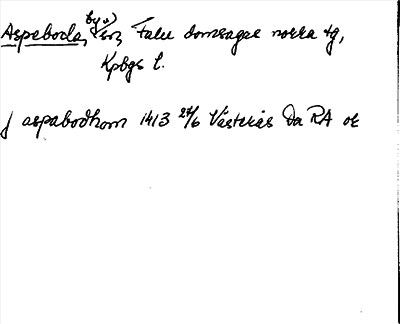 Aspeboda, by o) sn, Falu domsagas norra tg,
Kpbgs l.
j aspabodhom 1413 24/6 Västerås Da RA or